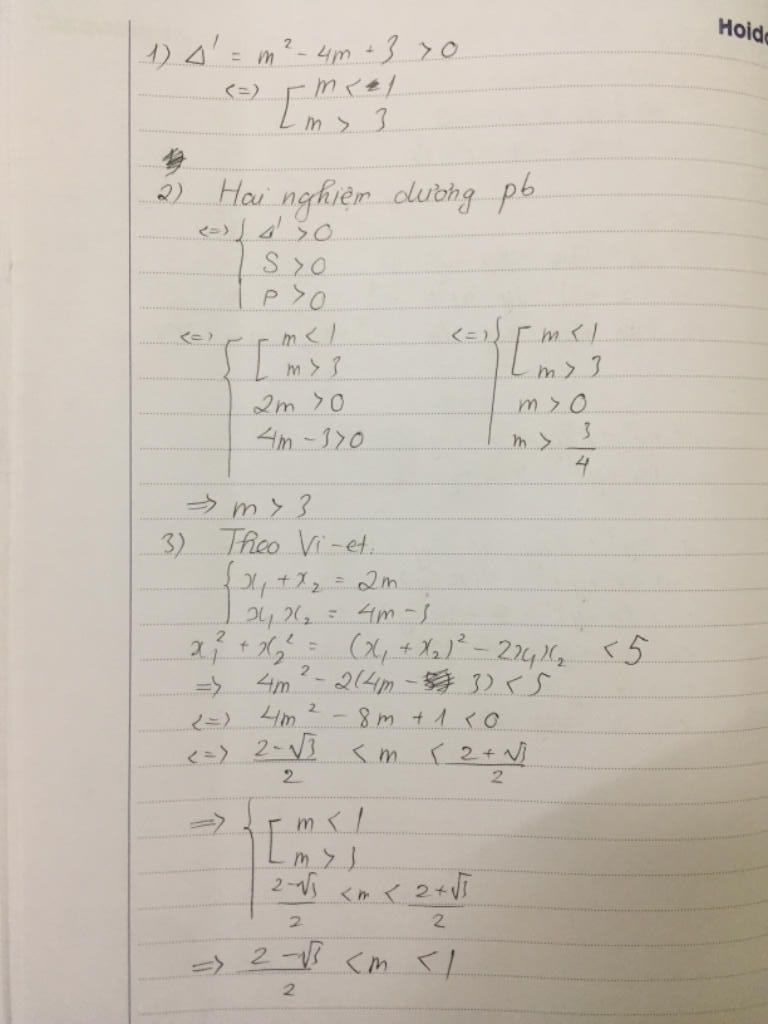 Hoido
1) Δ' = m² - 4m + 3 > 0
<=> [ m < 1
m > 3
2) Hai nghiệm dương pb
<=> { Δ' > 0
S > 0
P > 0
<=> { [ m < 1 <=> { [ m < 1
m > 3 m > 3
2m > 0 m > 0
4m - 3 > 0 m > 3/4
=> m > 3
3) Theo Vi-et.
{ x₁ + x₂ = 2m
x₁x₂ = 4m - 3
x₁² + x₂² = (x₁ + x₂)² - 2x₁x₂ < 5
=> 4m² - 2(4m - 3) < 5
<=> 4m² - 8m + 1 < 0
<=> (2-√3)/2 < m < (2+√3)/2
=> { [ m < 1
m > 3
(2-√3)/2 < m < (2+√3)/2
=> (2-√3)/2 < m < 1